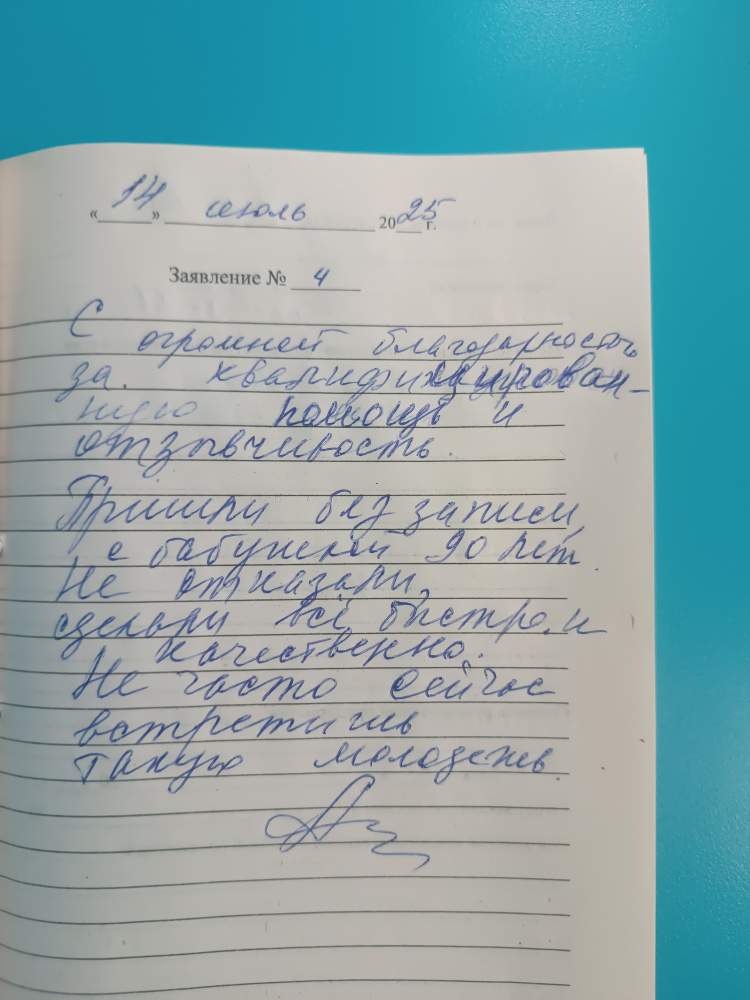 «14» июль 2025 г.
Заявление № 4
С огромной благодарностью
за квалифицирован-
ную помощь и
отзывчивость.
Пришли без записи,
с бабушкой 90 лет.
Не отказали,
сделали всё быстро и
качественно.
Не часто сейчас
встретишь
такую молодежь.